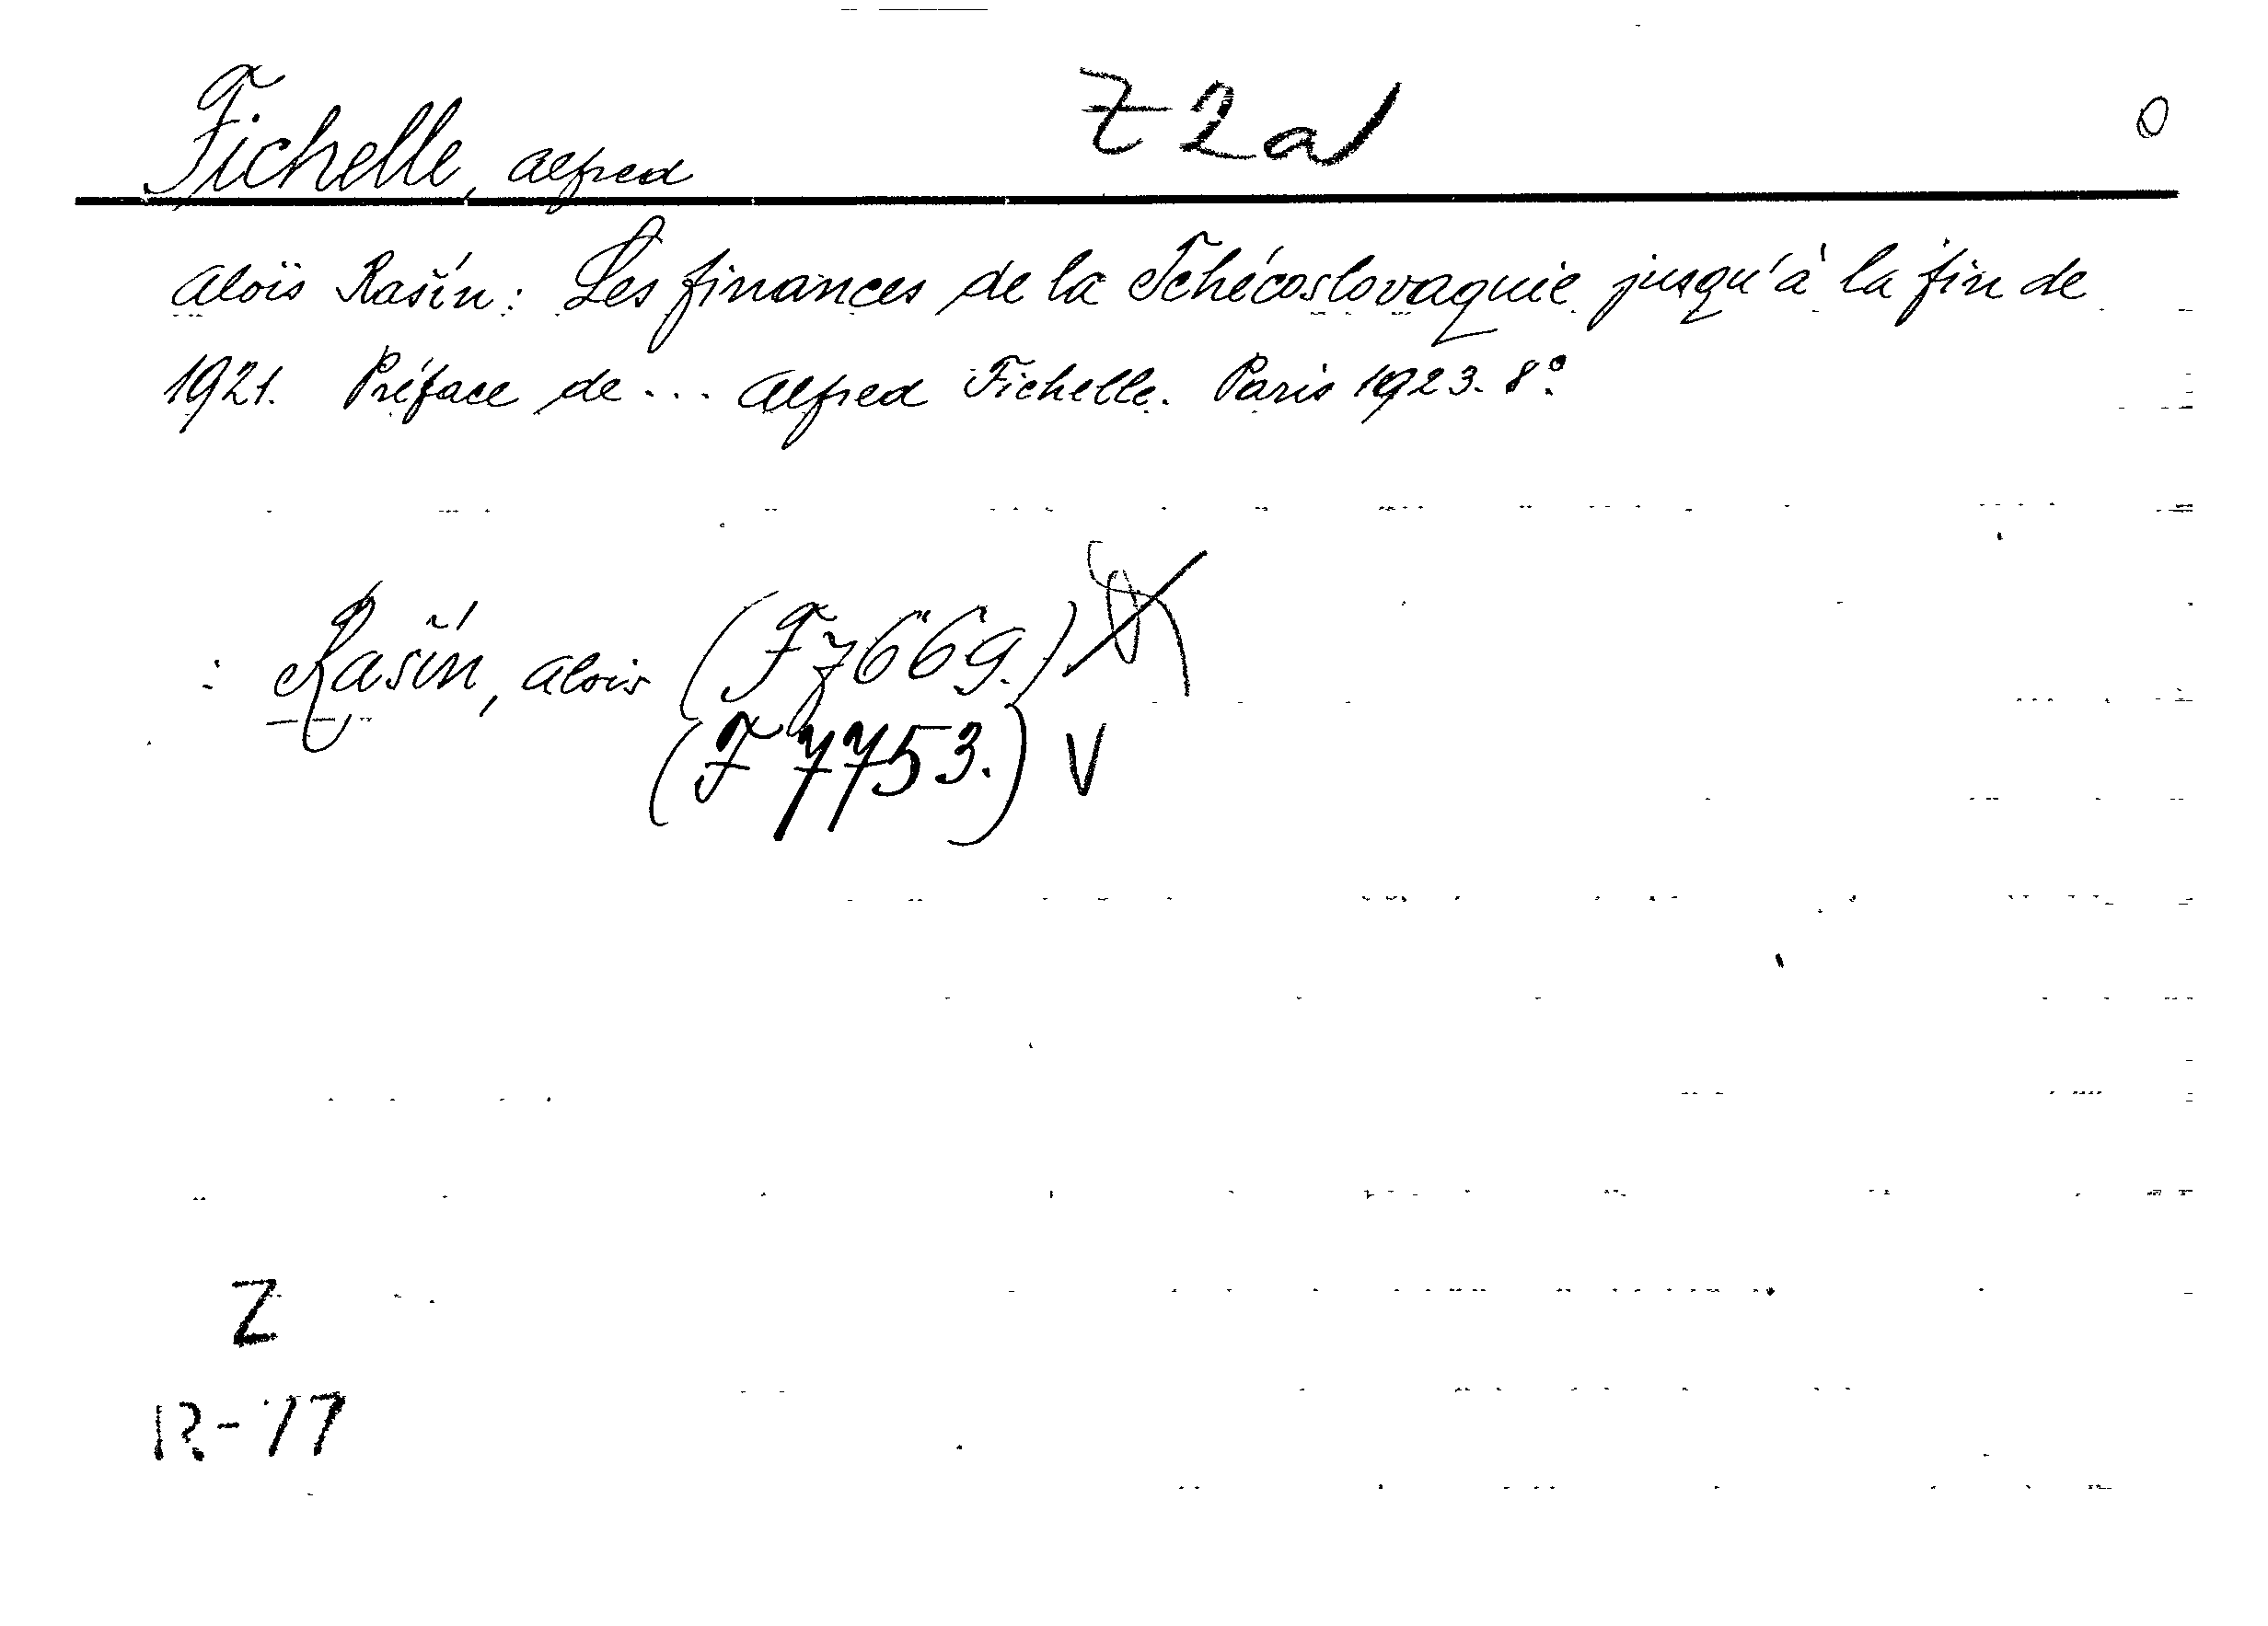 Fichelle, Alfred Z2a/ 0
Aloïs Rašín: Les finances de la Tchécoslovaquie jusqu'à la fin de
1921. Préface de ... Alfred Fichelle. Paris 1923. 8°.
: Rašín, Alois (F 7669.)
(F 7753.) V
Z
R-77